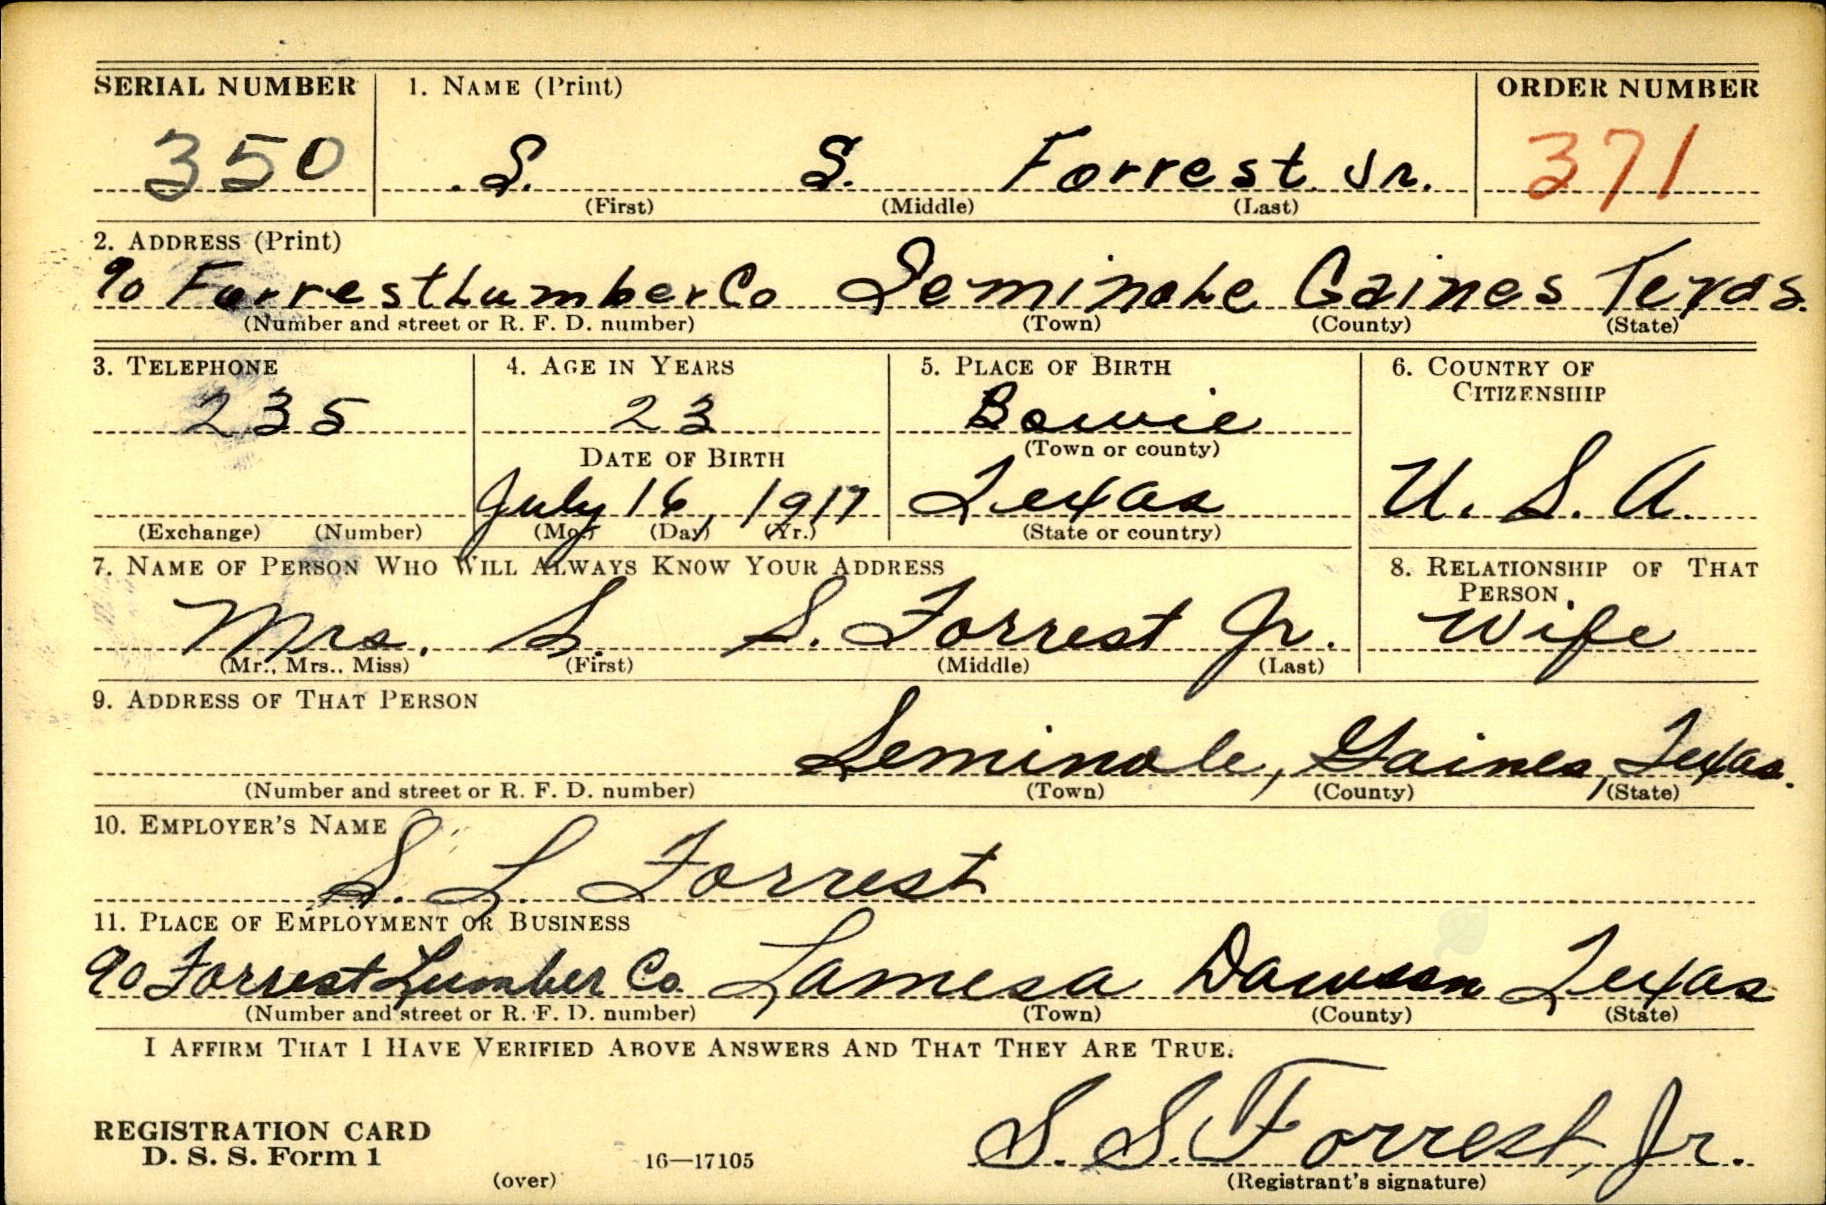 SERIAL NUMBER 1. NAME (Print) ORDER NUMBER
350 S. S. Forrest Jr. 371
(First) (Middle) (Last)
2. ADDRESS (Print)
% Forrest Lumber Co Seminole Gaines Texas.
(Number and street or R. F. D. number) (Town) (County) (State)
3. TELEPHONE 4. AGE IN YEARS 5. PLACE OF BIRTH 6. COUNTRY OF
CITIZENSHIP
235 23 Bowie
DATE OF BIRTH (Town or county)
July 16, 1917 Texas U. S. A.
(Exchange) (Number) (Mo.) (Day) (Yr.) (State or country)
7. NAME OF PERSON WHO WILL ALWAYS KNOW YOUR ADDRESS 8. RELATIONSHIP OF THAT
PERSON.
Mrs. S. S. Forrest Jr. Wife
(Mr., Mrs., Miss) (First) (Middle) (Last)
9. ADDRESS OF THAT PERSON
Seminole, Gaines, Texas.
(Number and street or R. F. D. number) (Town) (County) (State)
10. EMPLOYER'S NAME
S. L. Forrest
11. PLACE OF EMPLOYMENT OR BUSINESS
% Forrest Lumber Co. Lamesa Dawson Texas
(Number and street or R. F. D. number) (Town) (County) (State)
I AFFIRM THAT I HAVE VERIFIED ABOVE ANSWERS AND THAT THEY ARE TRUE.
S. S. Forrest, Jr.
REGISTRATION CARD
D. S. S. Form 1 16—17105
(over) (Registrant's signature)